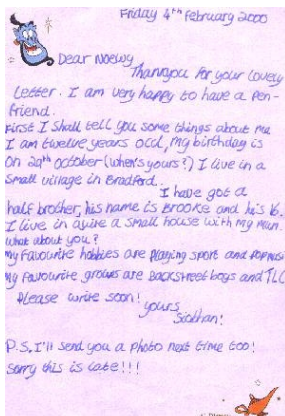 Friday 4th February 2000
Dear Noewy
Thankyou for your lovely
Letter. I am very happy to have a pen-
friend.
First I shall tell you some things about me
I am twelve years old, my birthday is
On 29th October (when's yours?) I live in a
small village in Bradford.
I have got a
half brother, his name is BROOKE and he's 16.
I live in quite a small house with my mum.
What about you?
My favourite hobbies are playing sport and pop music
My favourite groups are BACKSTREET boys and TLC
Please write soon!
yours
Siobhan!
P.S, I'll send you a photo next time too!
Sorry this is late!!!